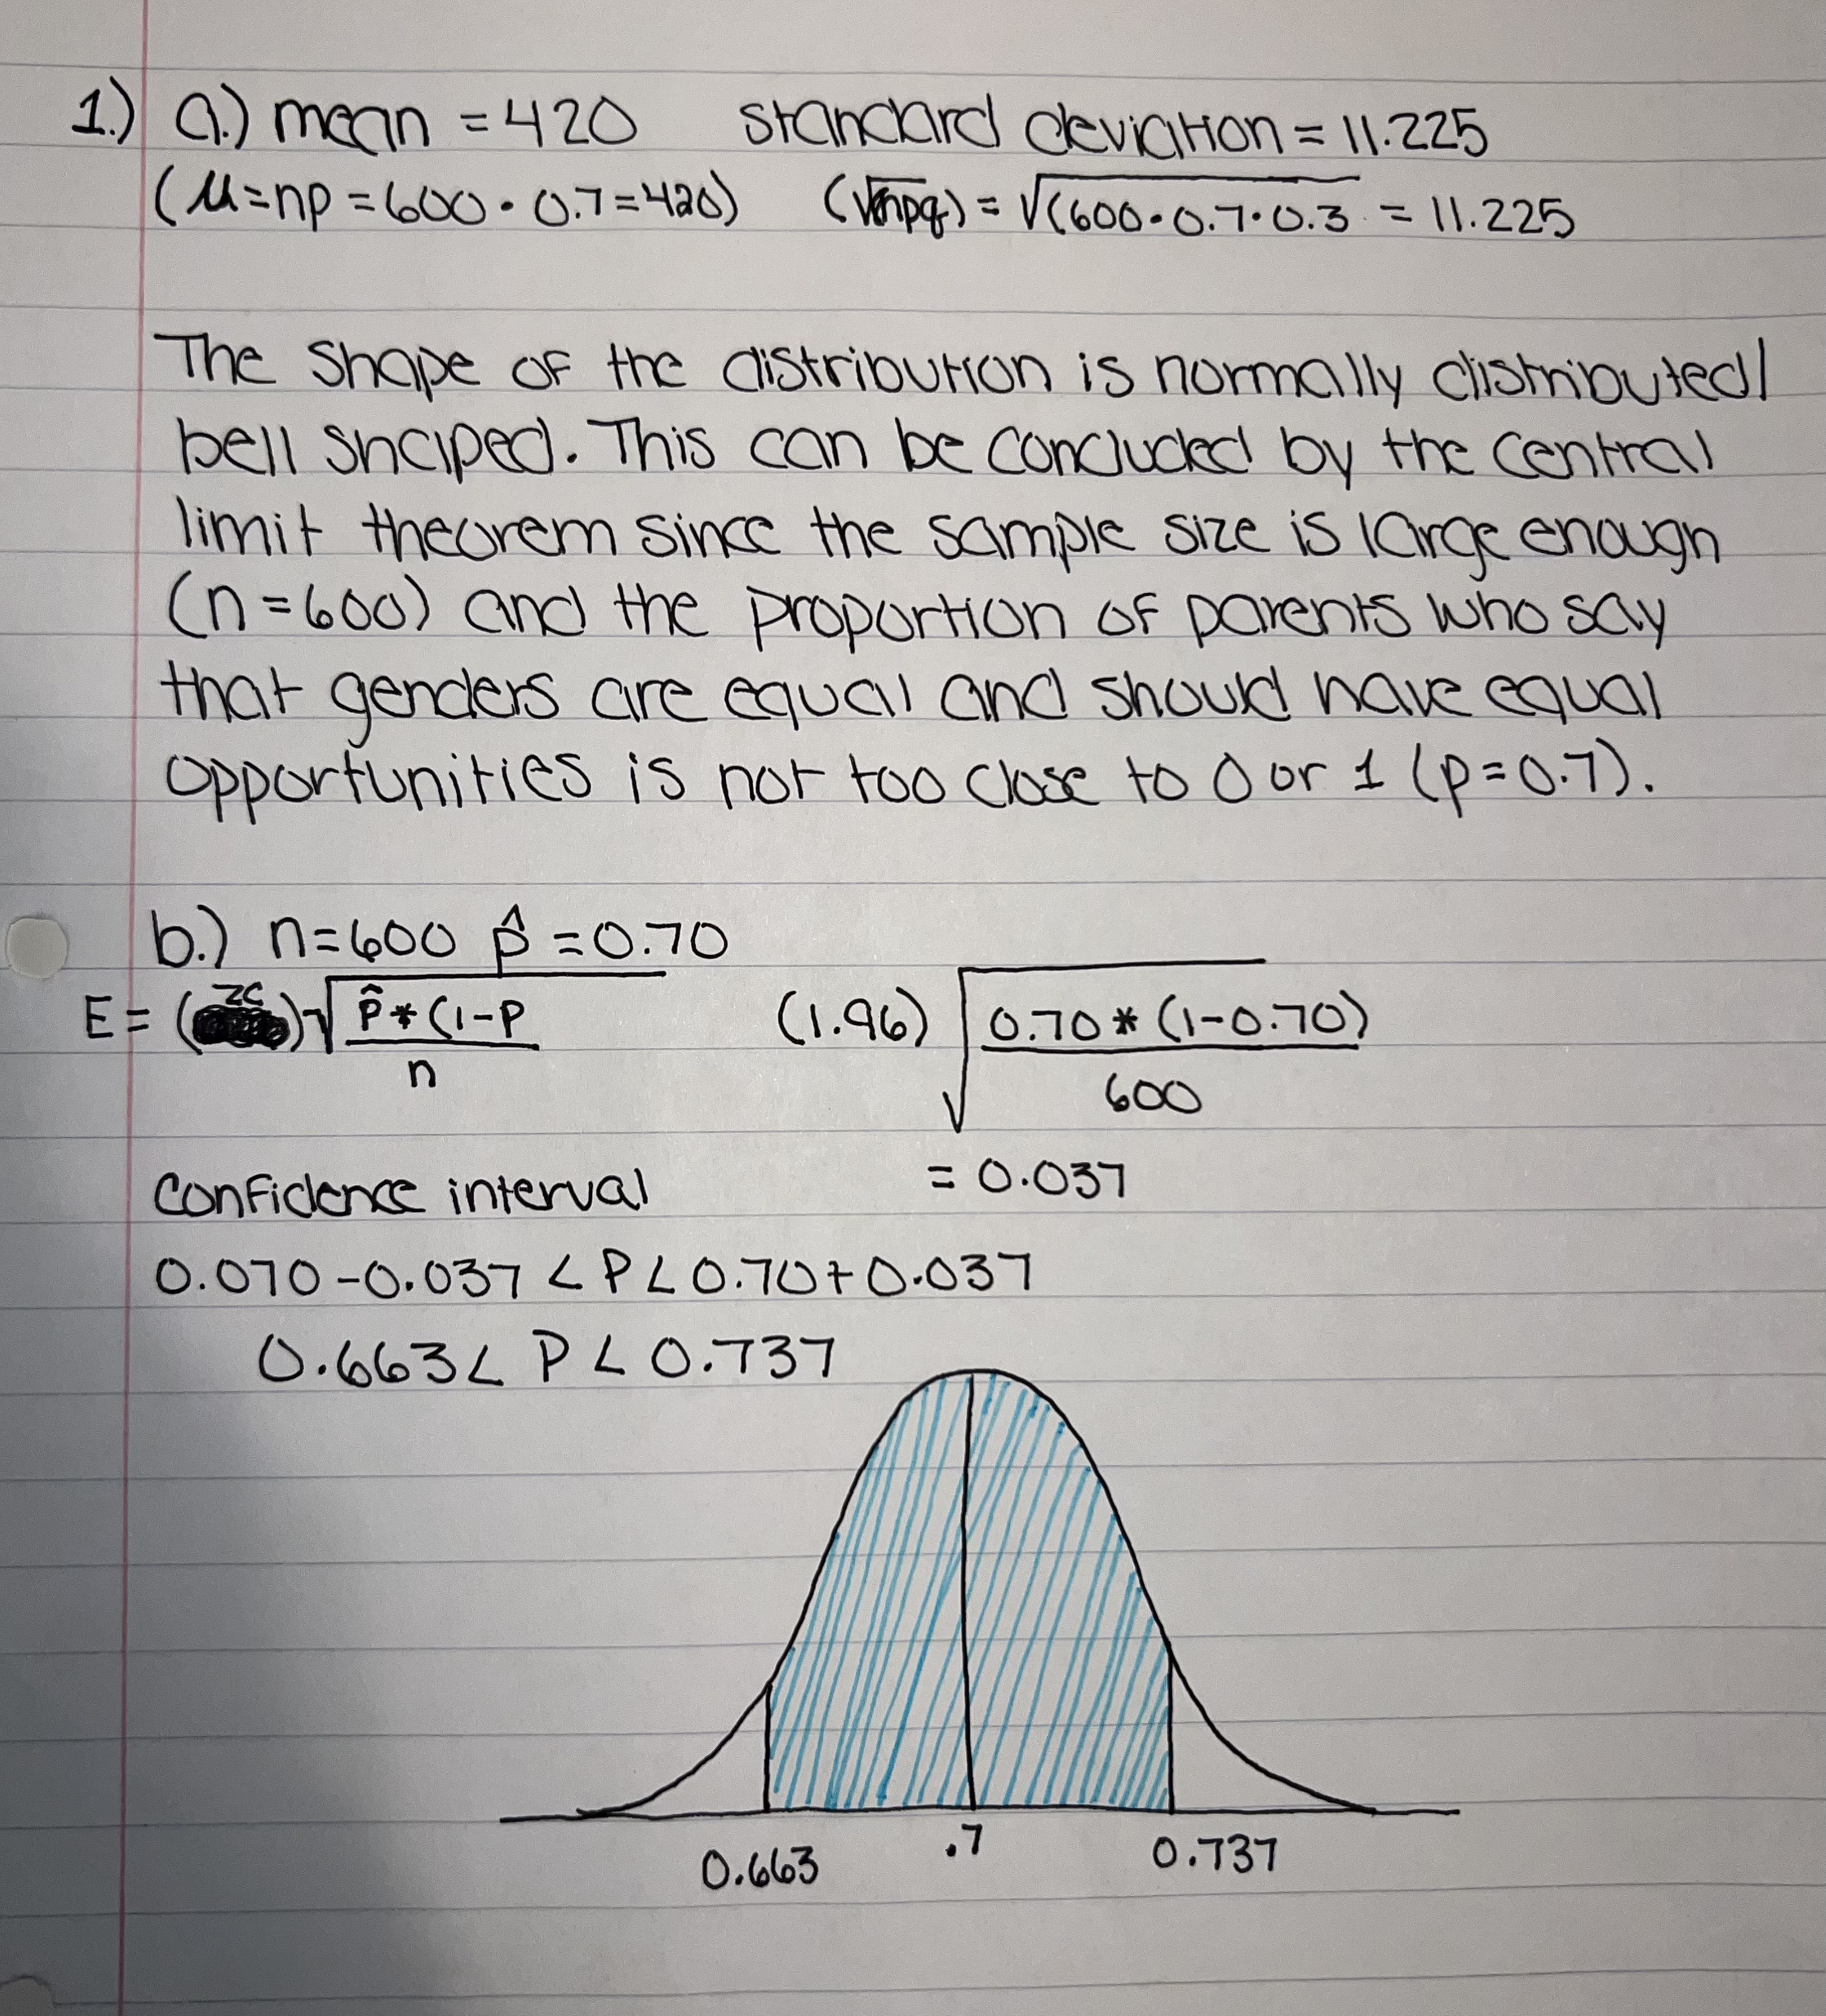 1.) a.) mean = 420 standard deviation = 11.225
(μ=np = 600 · 0.7 = 420) (√npq) = √(600·0.7·0.3 = 11.225
The shape of the distribution is normally distributed/
bell shaped. This can be concluded by the central
limit theorem since the sample size is large enough
(n=600) and the proportion of parents who say
that genders are equal and should have equal
opportunities is not too close to 0 or 1 (p=0.7).
b.) n=600 p̂ =0.70
E = (zc)√ p̂*(1-p (1.96) √ 0.70 * (1-0.70)
n 600
Confidence interval = 0.037
0.070-0.037 < P < 0.70+0.037
0.663 < P < 0.737
0.663 .7 0.737